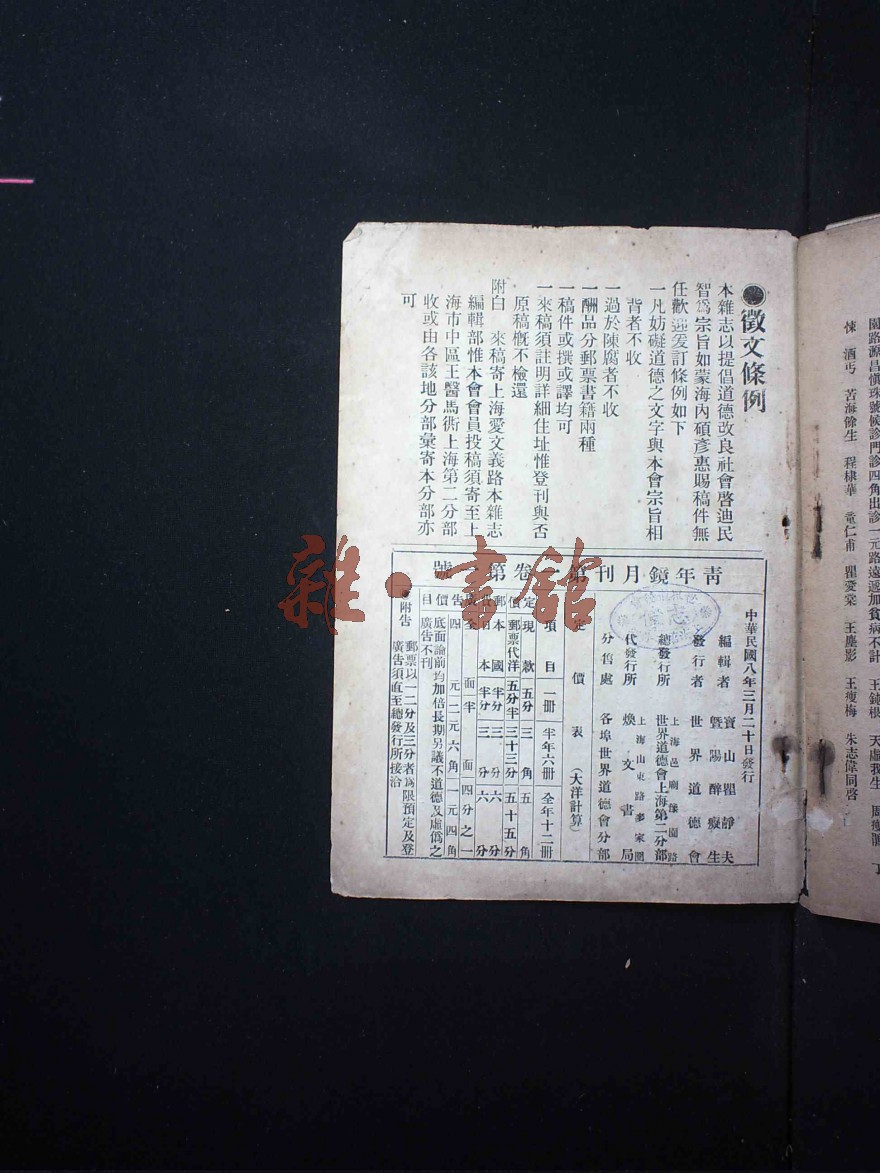 園路源昌慎珠號候診門診四角出診一元路遠遞加貧病不計
酒丐　苦海餘生　程棣華　童仁甫　瞿愛棠　王塵影　王瘦梅　朱志偉同啓
●徵文條例
本雜志以提倡道德改良社會啓迪民
智爲宗旨如蒙海內碩彥惠賜稿件無
任歡迎爰訂條例如下
一凡妨礙道德之文字與本會宗旨相
背者不收
一過於陳腐者不收
一酬品分郵票書籍兩種
一稿件或撰或譯均可
一來稿須註明詳細住址惟登刊與否
原稿槪不檢還
附白　來稿寄上海愛文義路本雜志
編輯部惟本會會員投稿須寄至上
海市中區王醫馬衖上海第二分部
收或由各該地分部彙寄本分部亦
可
靑年鏡月刊第 卷第 號
中華民國八年三月二十日發行
編輯者　寶山瞿靜夫
曁陽醉癡生
發行者　世界道德會
總發行所　上海邑廟豫園路
世界道德會上海第二分部
代發行所　上海山東路麥家圈
煥文書局
分售處　各埠世界道德會分部
定價表（大洋計算）
項目　一册　半年六册　全年十二册
定價　現款　五分　三角　五角
郵票代洋　五分半　三十三分　五十五分
郵　本國　半分　三分　六分
日本　半分　三分　六分
全面　半面　四分之一
四元　二元六角　一元四角
廣告價目　底面論前均加倍長期另議不道德及虛僞之
廣告不刊
●附告　郵票以一二分及三分者爲限預定及登
廣告須直至總發行所接洽
雜·書館